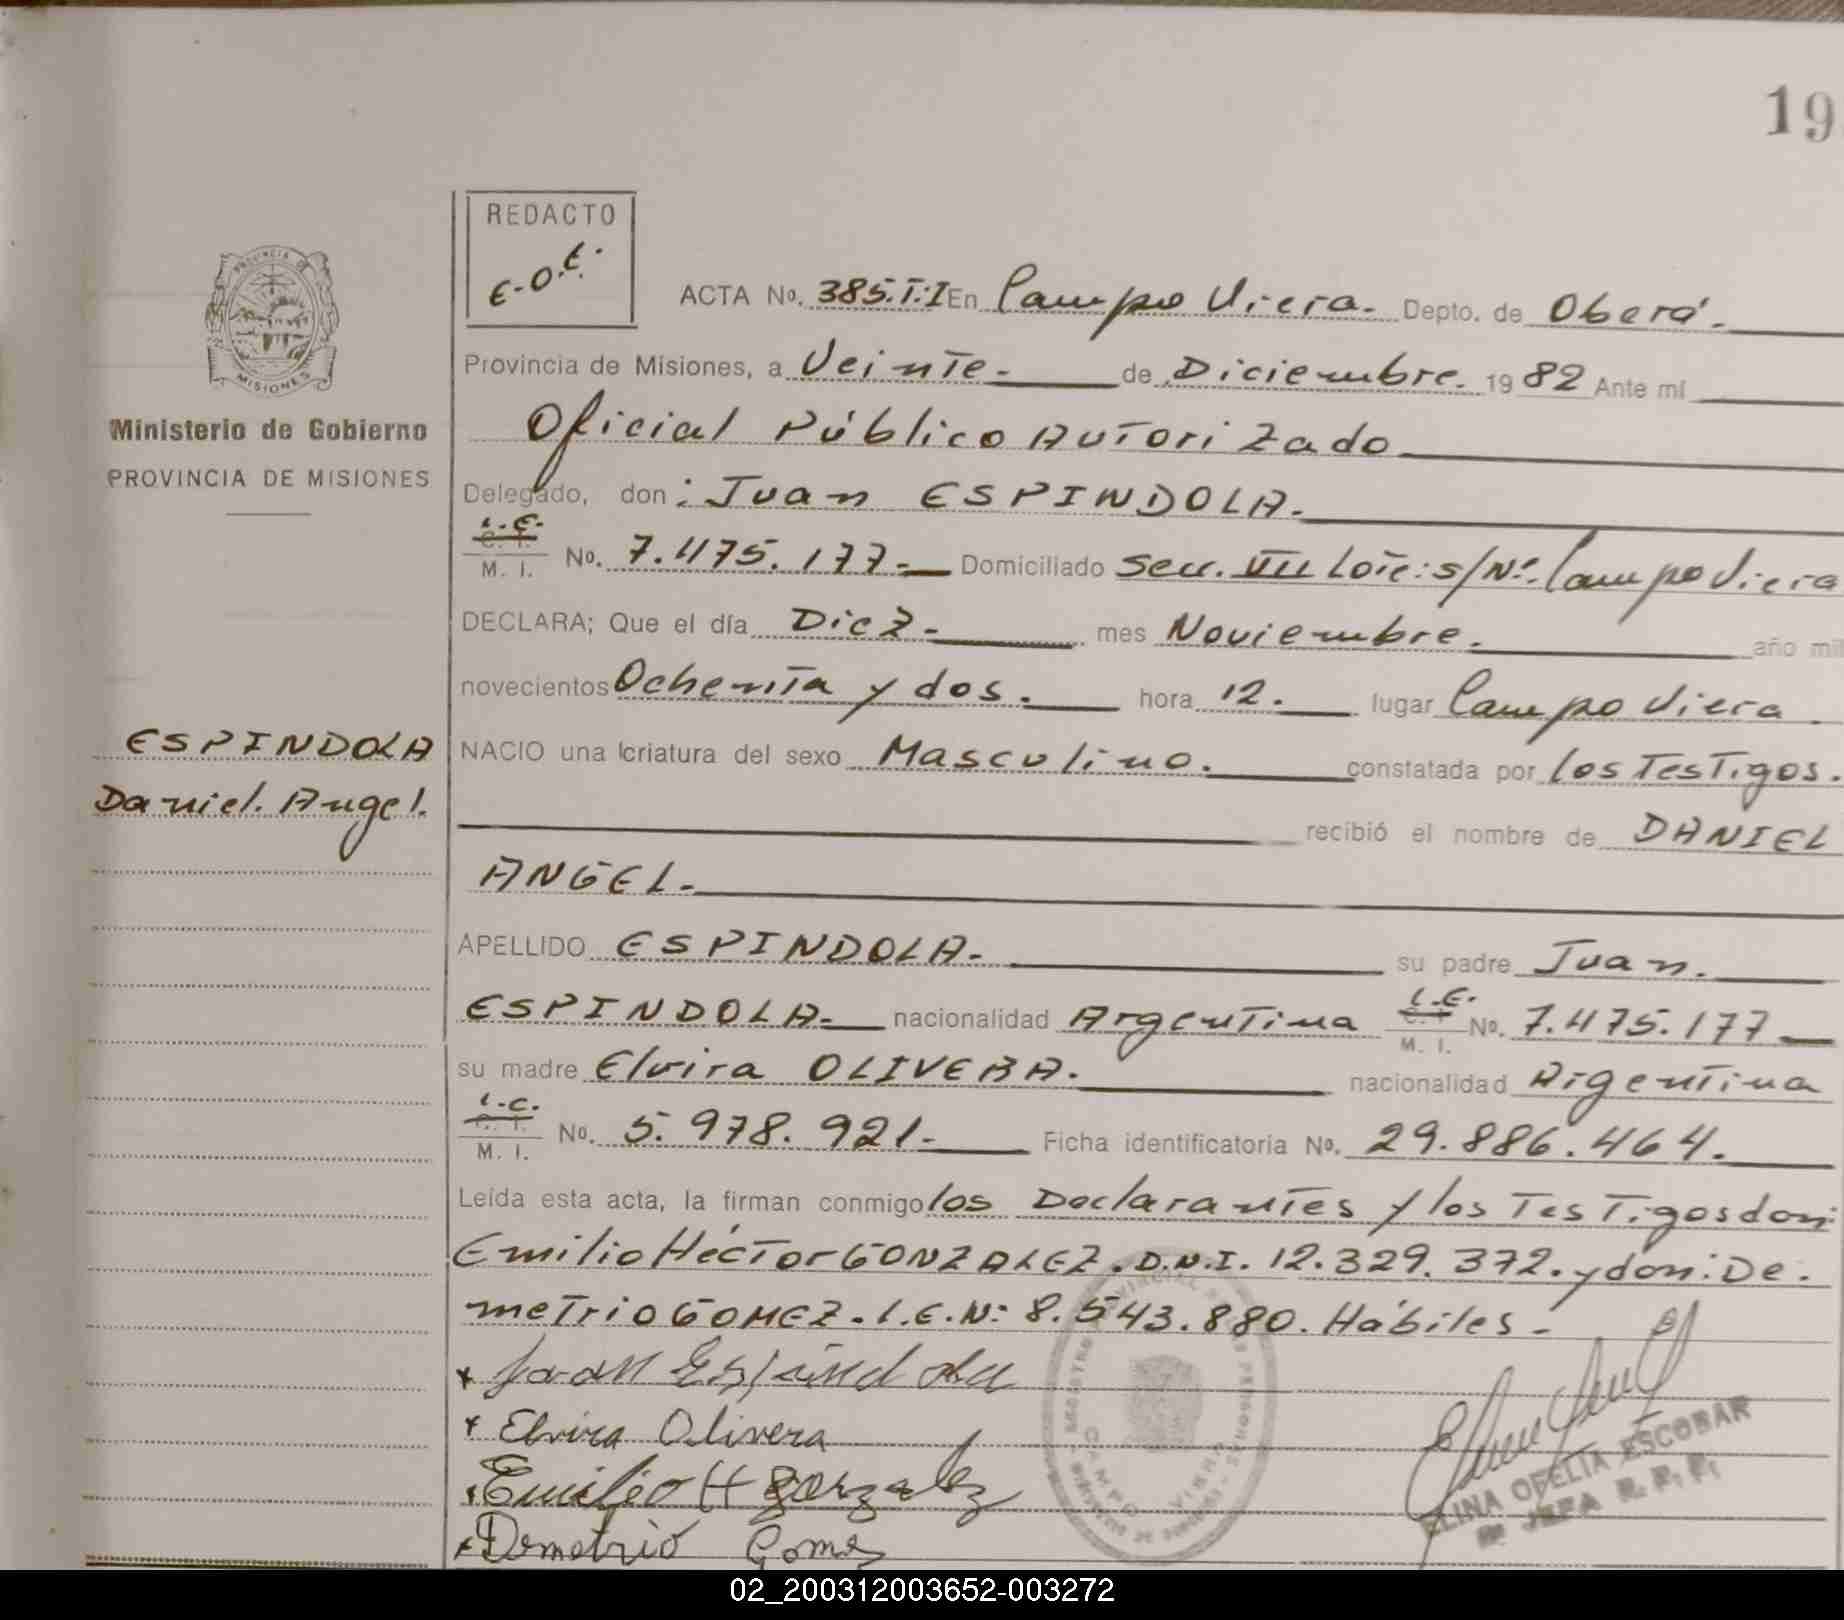 19
REDACTO
E-O.E.
PROVINCIA DE
MISIONES
Ministerio de Gobierno
PROVINCIA DE MISIONES
ESPINDOLA
Daniel. Angel.
ACTA No. 385.T:I En Campo Viera. Depto. de Oberá.
Provincia de Misiones, a Veinte. de Diciembre. 19 82 Ante mi
Oficial Público Autorizado
Delegado, don: Juan ESPINDOLA.
L.E.
M. I. No. 7.475.177- Domiciliado Secc. VII Lote: s/Nº. Campo Viera
DECLARA; Que el día Diez- mes Noviembre. año mil
novecientos Ochenta y dos. hora 12. lugar Campo Viera.
NACIO una criatura del sexo Masculino. constatada por los Testigos.
recibió el nombre de DANIEL
ANGEL.
APELLIDO ESPINDOLA- su padre Juan.
ESPINDOLA- nacionalidad Argentina L.E. M. I. No. 7.475.177
su madre Elvira OLIVERA. nacionalidad Argentina
L.C.
M. I. No. 5.978.921- Ficha identificatoria No. 29.886.464.
Leída esta acta, la firman conmigo los Declarantes y los Testigos don:
Emilio Héctor GONZALEZ. D.N.I. 12.329.372. y don: De.
metrio GOMEZ. L.E.N: 8.543.880. Hábiles-
Juan Espindola
Elvira Olivera
Emilio H Gonzalez
Demetrio Gomez
CAMPO VIERA
ELINA OFELIA ESCOBAR
JEFA R. P. P.
02_200312003652-003272